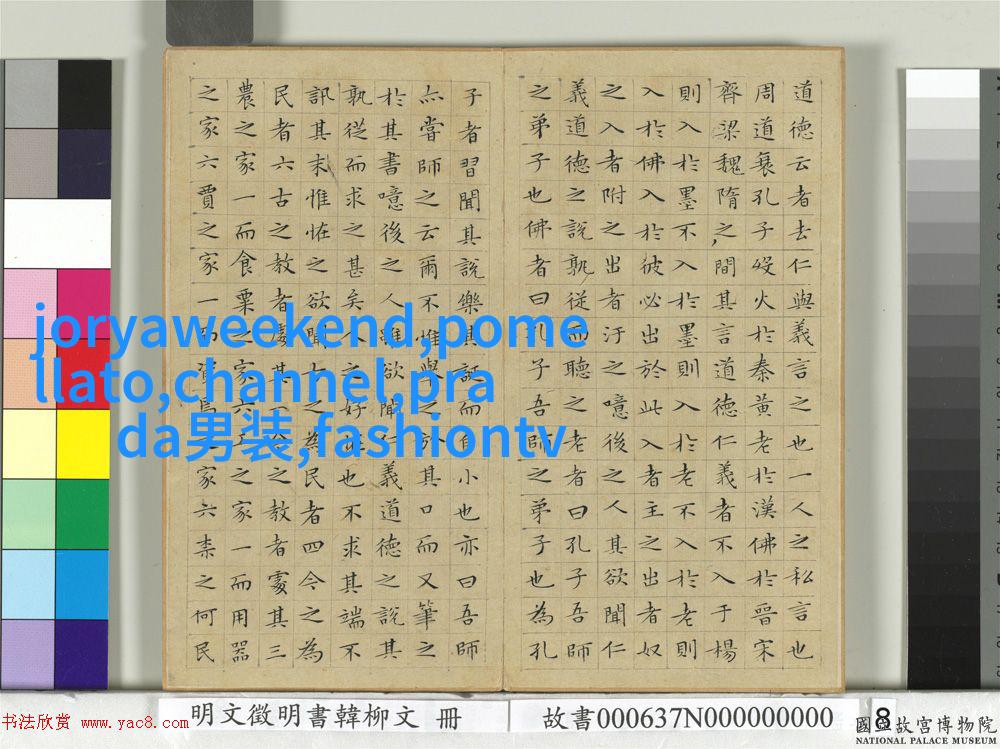 道德云者去仁與義言之也一人之私言也
周道衰孔子歿火於秦黃老於漢佛於晉宋
齊梁魏隋之間其言道德仁義者不入于楊
則入於墨不入於墨則入於老不入於老則
入於佛入於彼必出於此入者主之出者奴
之入者附之出者汙之噫後之人其欲聞仁
義道德之說孰從而聽之老者曰孔子吾師
之弟子也佛者曰孔子吾師之弟子也為孔
子者習聞其說樂其誕而自小也亦曰吾師
亦嘗師之云爾不惟舉之於其口而又筆之
於其書噫後之人雖欲聞仁義道德之說其
孰從而求之甚矣人之好怪也不求其端不
訊其末惟怪之欲聞古之為民者四今之為
民者六古之教者處其一今之教者處其三
農之家一而食粟之家六工之家一而用器
之家六賈之家一而資焉之家六柰之何民
joryaweekend,pome
llato,channel,pra
da男装,fashiontv
明文徵明書韓柳文 冊
故書000637N000000000
8
书法欣赏 www.yac8.com
國立故宮博物院
NATIONAL PALACE MUSEUM